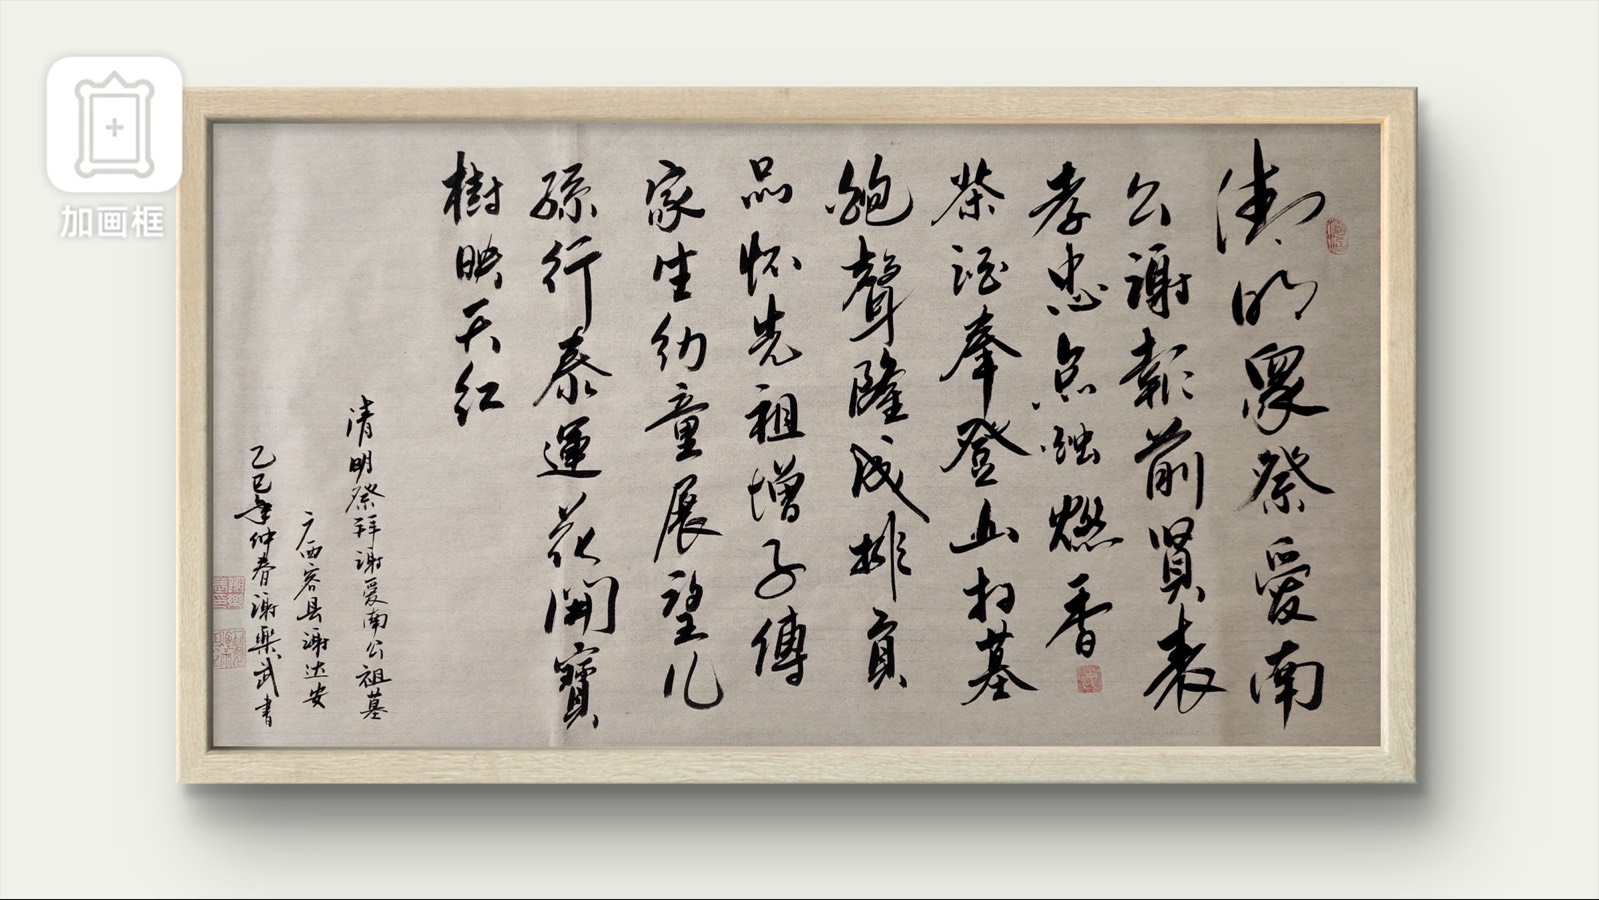 清明眾祭愛南
公謝報前賢表
孝忠点燭燃香
茶酒奉登山扫墓
炮聲隆成排貢
品怀先祖增子傳
家生幼童展望儿
孫行泰運花開寶
樹映天红
清明祭拜谢爱南公祖墓
广西容县谢达安
乙巳年仲春谢樂武書
加画框